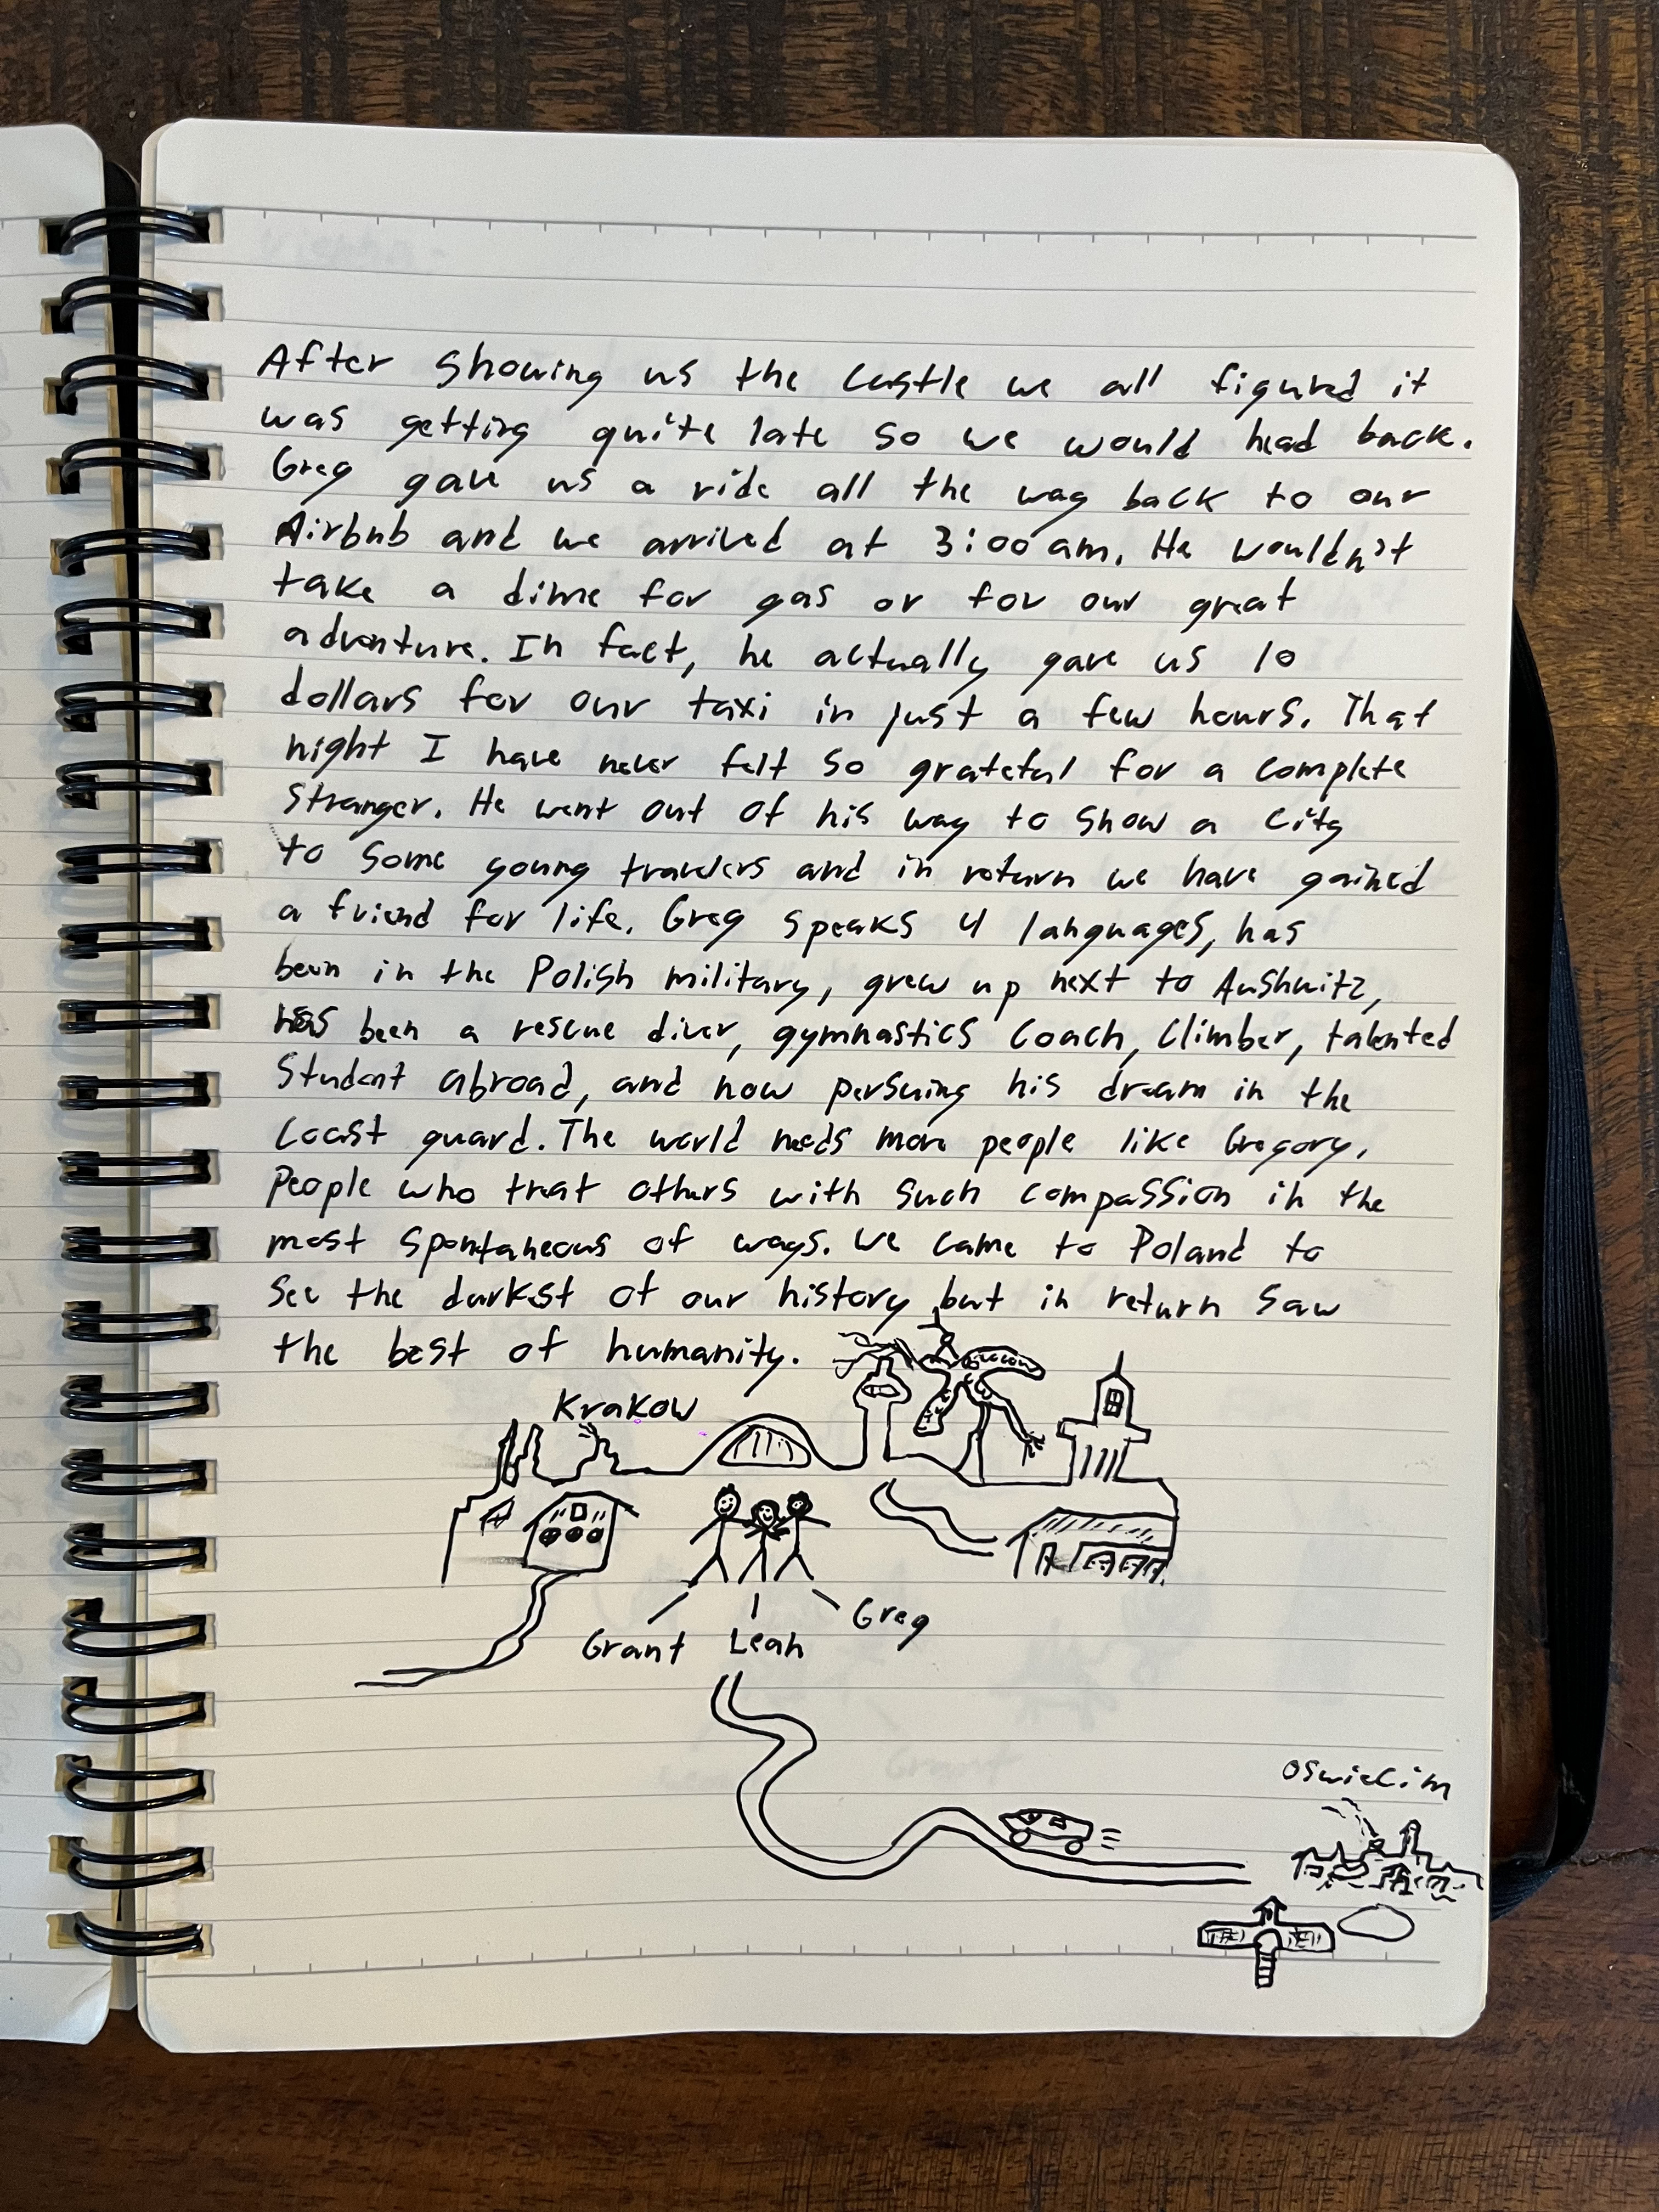 After showing us the Castle we all figured it
was getting quite late so we would head back.
Greg gave us a ride all the way back to our
Airbnb and we arrived at 3:00 am. He wouldn't
take a dime for gas or for our great
adventure. In fact, he actually gave us 10
dollars for our taxi in just a few hours. That
night I have never felt so grateful for a complete
stranger. He went out of his way to show a city
to some young travelers and in return we have gained
a friend for life. Greg speaks 4 languages, has
been in the Polish military, grew up next to Aushwitz,
has been a rescue diver, gymnastics coach, climber, talented
student abroad, and now persuing his dream in the
coast guard. The world needs more people like Gregory,
People who treat others with such compassion in the
most spontaneous of ways. We came to Poland to
see the darkest of our history but in return saw
the best of humanity.
Krakow
Grant Leah Greg
Oswiecim